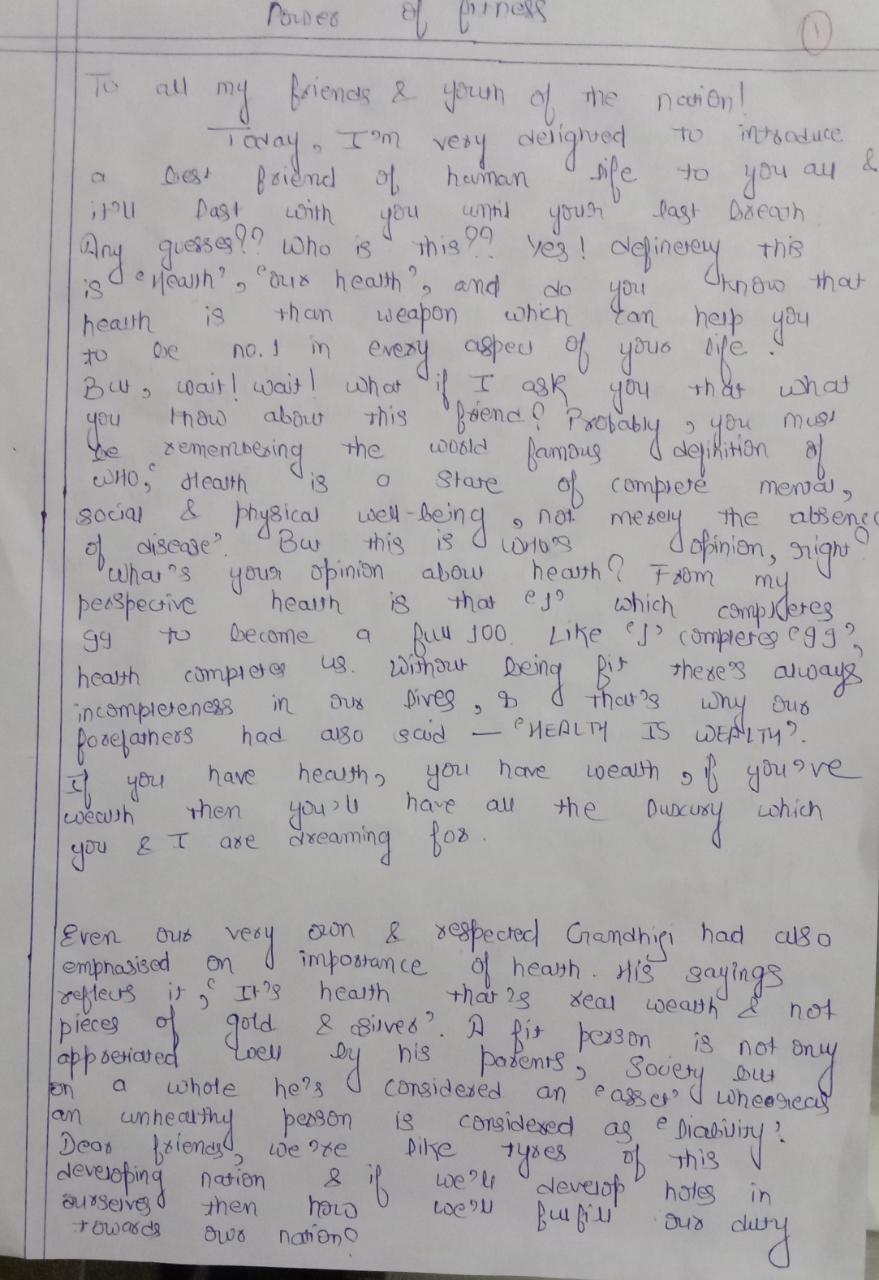 Power of fitness
1
To all my friends & youth of the nation!
Today, I'm very delighted to introduce
a best friend of human life to you all &
it'll last with you until your last breath
Any guesses?? Who is this?? Yes! definetely this
is 'Health', 'our health', and do you know that
health is than weapon which can help you
to be no.1 in every aspect of your life.
But, wait! wait! what if I ask you that what
you know about this friend? Probably, you must
be remembering the world famous definition of
WHO, 'Health is a state of complete mental,
social & physical well-being, not merely the absence
of disease'. But this is WHO's opinion, right?
What's your opinion about health? From my
perspective health is that '1' which completes
99 to become a full 100. Like '1' completes '99',
health completes us. Without being fit there's always
incompleteness in our lives, & that's why our
forefathers had also said — 'HEALTH IS WEALTH'.
If you have health, you have wealth, if you've
wealth then you'll have all the luxury which
you & I are dreaming for.
Even our very own & respected Gandhiji had also
emphasised on importance of health. His sayings
reflects it, 'It's health that's real wealth & not
pieces of gold & silver'. A fit person is not only
appretiated well by his parents, society but
on a whole he's considered an 'asset' wheogreas
an unhealthy person is considered as 'liability'.
Dear friends, we're like tyres of this
developing nation & if we'll develop holes in
ourselves then how we'll fulfill our duty
towards our nation?